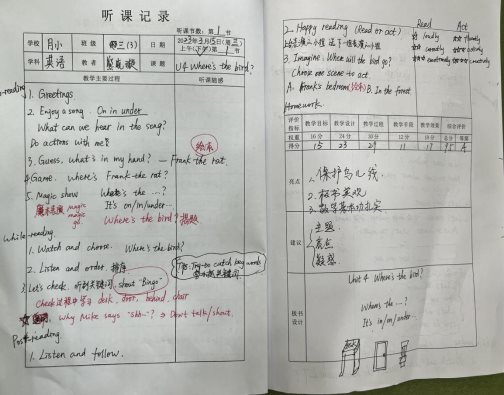 听课记录
听课节数:第 1 节
学校 月小 班级 三(3) 日期 2023年3月15日(第三)
上午(下午)第1节
学科 英语 教者 课题 U4 Where's the bird?
教学主要过程 听课随感
Pre-reading
1. Greetings
2. Enjoy a song On in under
What can we hear in the song?
Do actions with me
绘本
3. Guess, what's in my hand? — Frank the rat.
4 Game. where's Frank the rat?
5. Magic show Where's the ...?
魔术表演 magic magic go. It's on/in/under...
Where's the bird? 揭题
While-reading
1. Watch and choose. Where's the bird?
2. Listen and order. 排序
Tips: Try to catch key words
3. Let's check. 听到关键词 shout "Bingo"
Check过程中学习 desk, door, behind, chair
Why Mike says "Shh~"? → Don't talk/shout.
Post-reading
1. Listen and follow.
2. Happy reading (Read or act) Read Act
loudly fluently
correctly
emotionally creatively
3. Imagine: Where will the bird go?
Choose one scene to act
A. Frank's bedroom (绘本) B. In the forest
Homework.
评价指标 教学目标 教学设计 教学过程 教学手段 教学效果 综合评价
权重 16分 24分 30分 12分 18分 总分 等第
得分 15 23 29 11 17 95 A
亮点
1. 保护鸟儿线
2. 板书美观
3. 教学基本功扎实
建议
主题
亮点
板书设计
Unit 4 Where's the bird?
Where's the ...?
It's in/on/under...